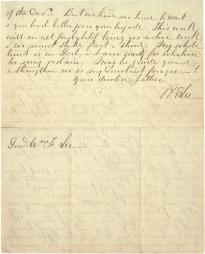 of the Cavy. But we have no time to wait
& you had better join your brigade. This week
will in all probability bring us active work
& we must strike fast & strong. My whole
trust is in God, & I am ready for whatever
he may ordain. May he guide guard
& strengthen us is my constant prayer!
Your devoted father
R E Lee
Genl Wm F. Lee